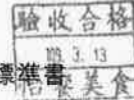 驗收合格
3.13
標準書
美食